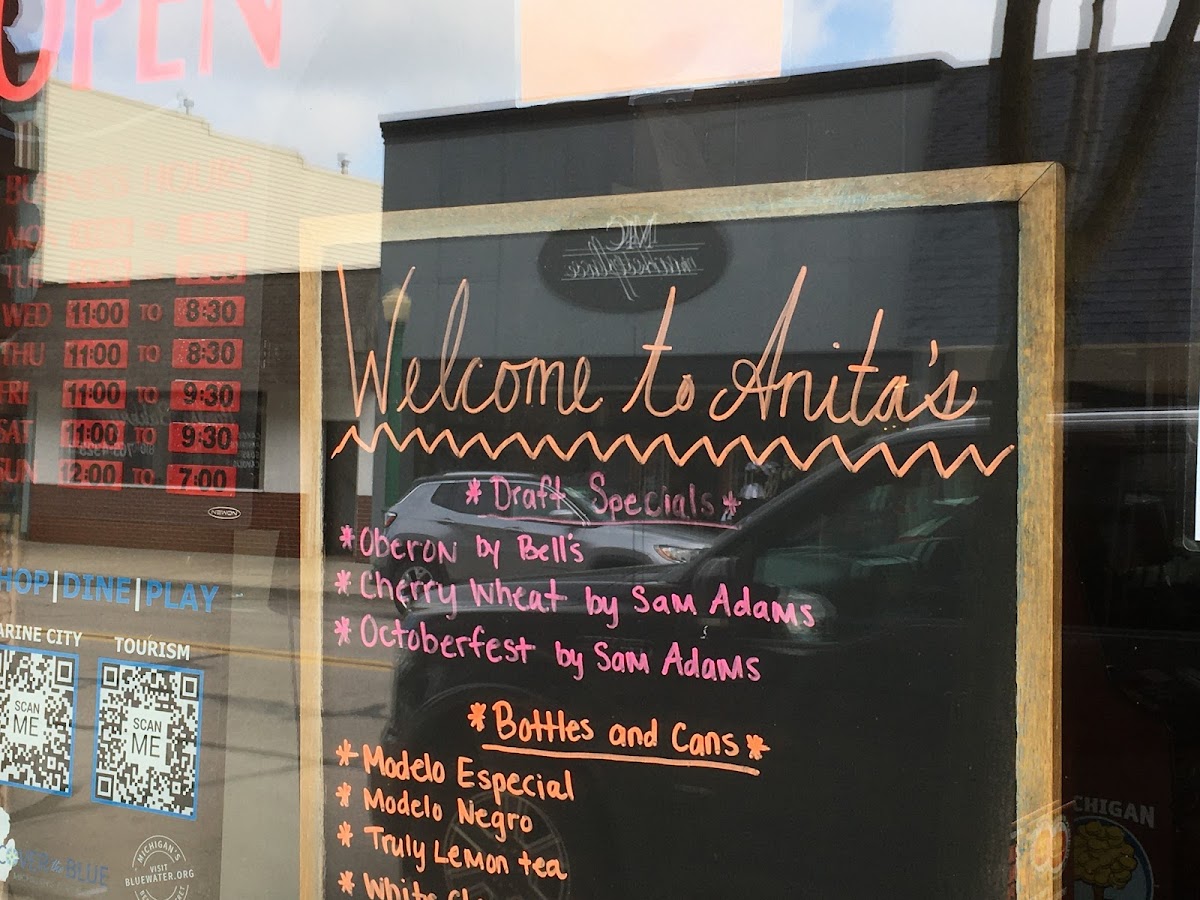 OPEN
BUSINESS HOURS
MON TO
TUE TO
WED 11:00 TO 8:30
THU 11:00 TO 8:30
FRI 11:00 TO 9:30
SAT 11:00 TO 9:30
SUN 12:00 TO 7:00
NEWON
Welcome to Anita's
*Draft Specials*
*Oberon by Bell's
*Cherry Wheat by Sam Adams
*Octoberfest by Sam Adams
*Bottles and Cans*
*Modelo Especial
*Modelo Negro
*Truly Lemon tea
*White
HOP|DINE|PLAY
ARINE CITY TOURISM
SCAN ME SCAN ME
BLUE
MICHIGAN'S
VISIT
BLUEWATER.ORG
CHIGAN